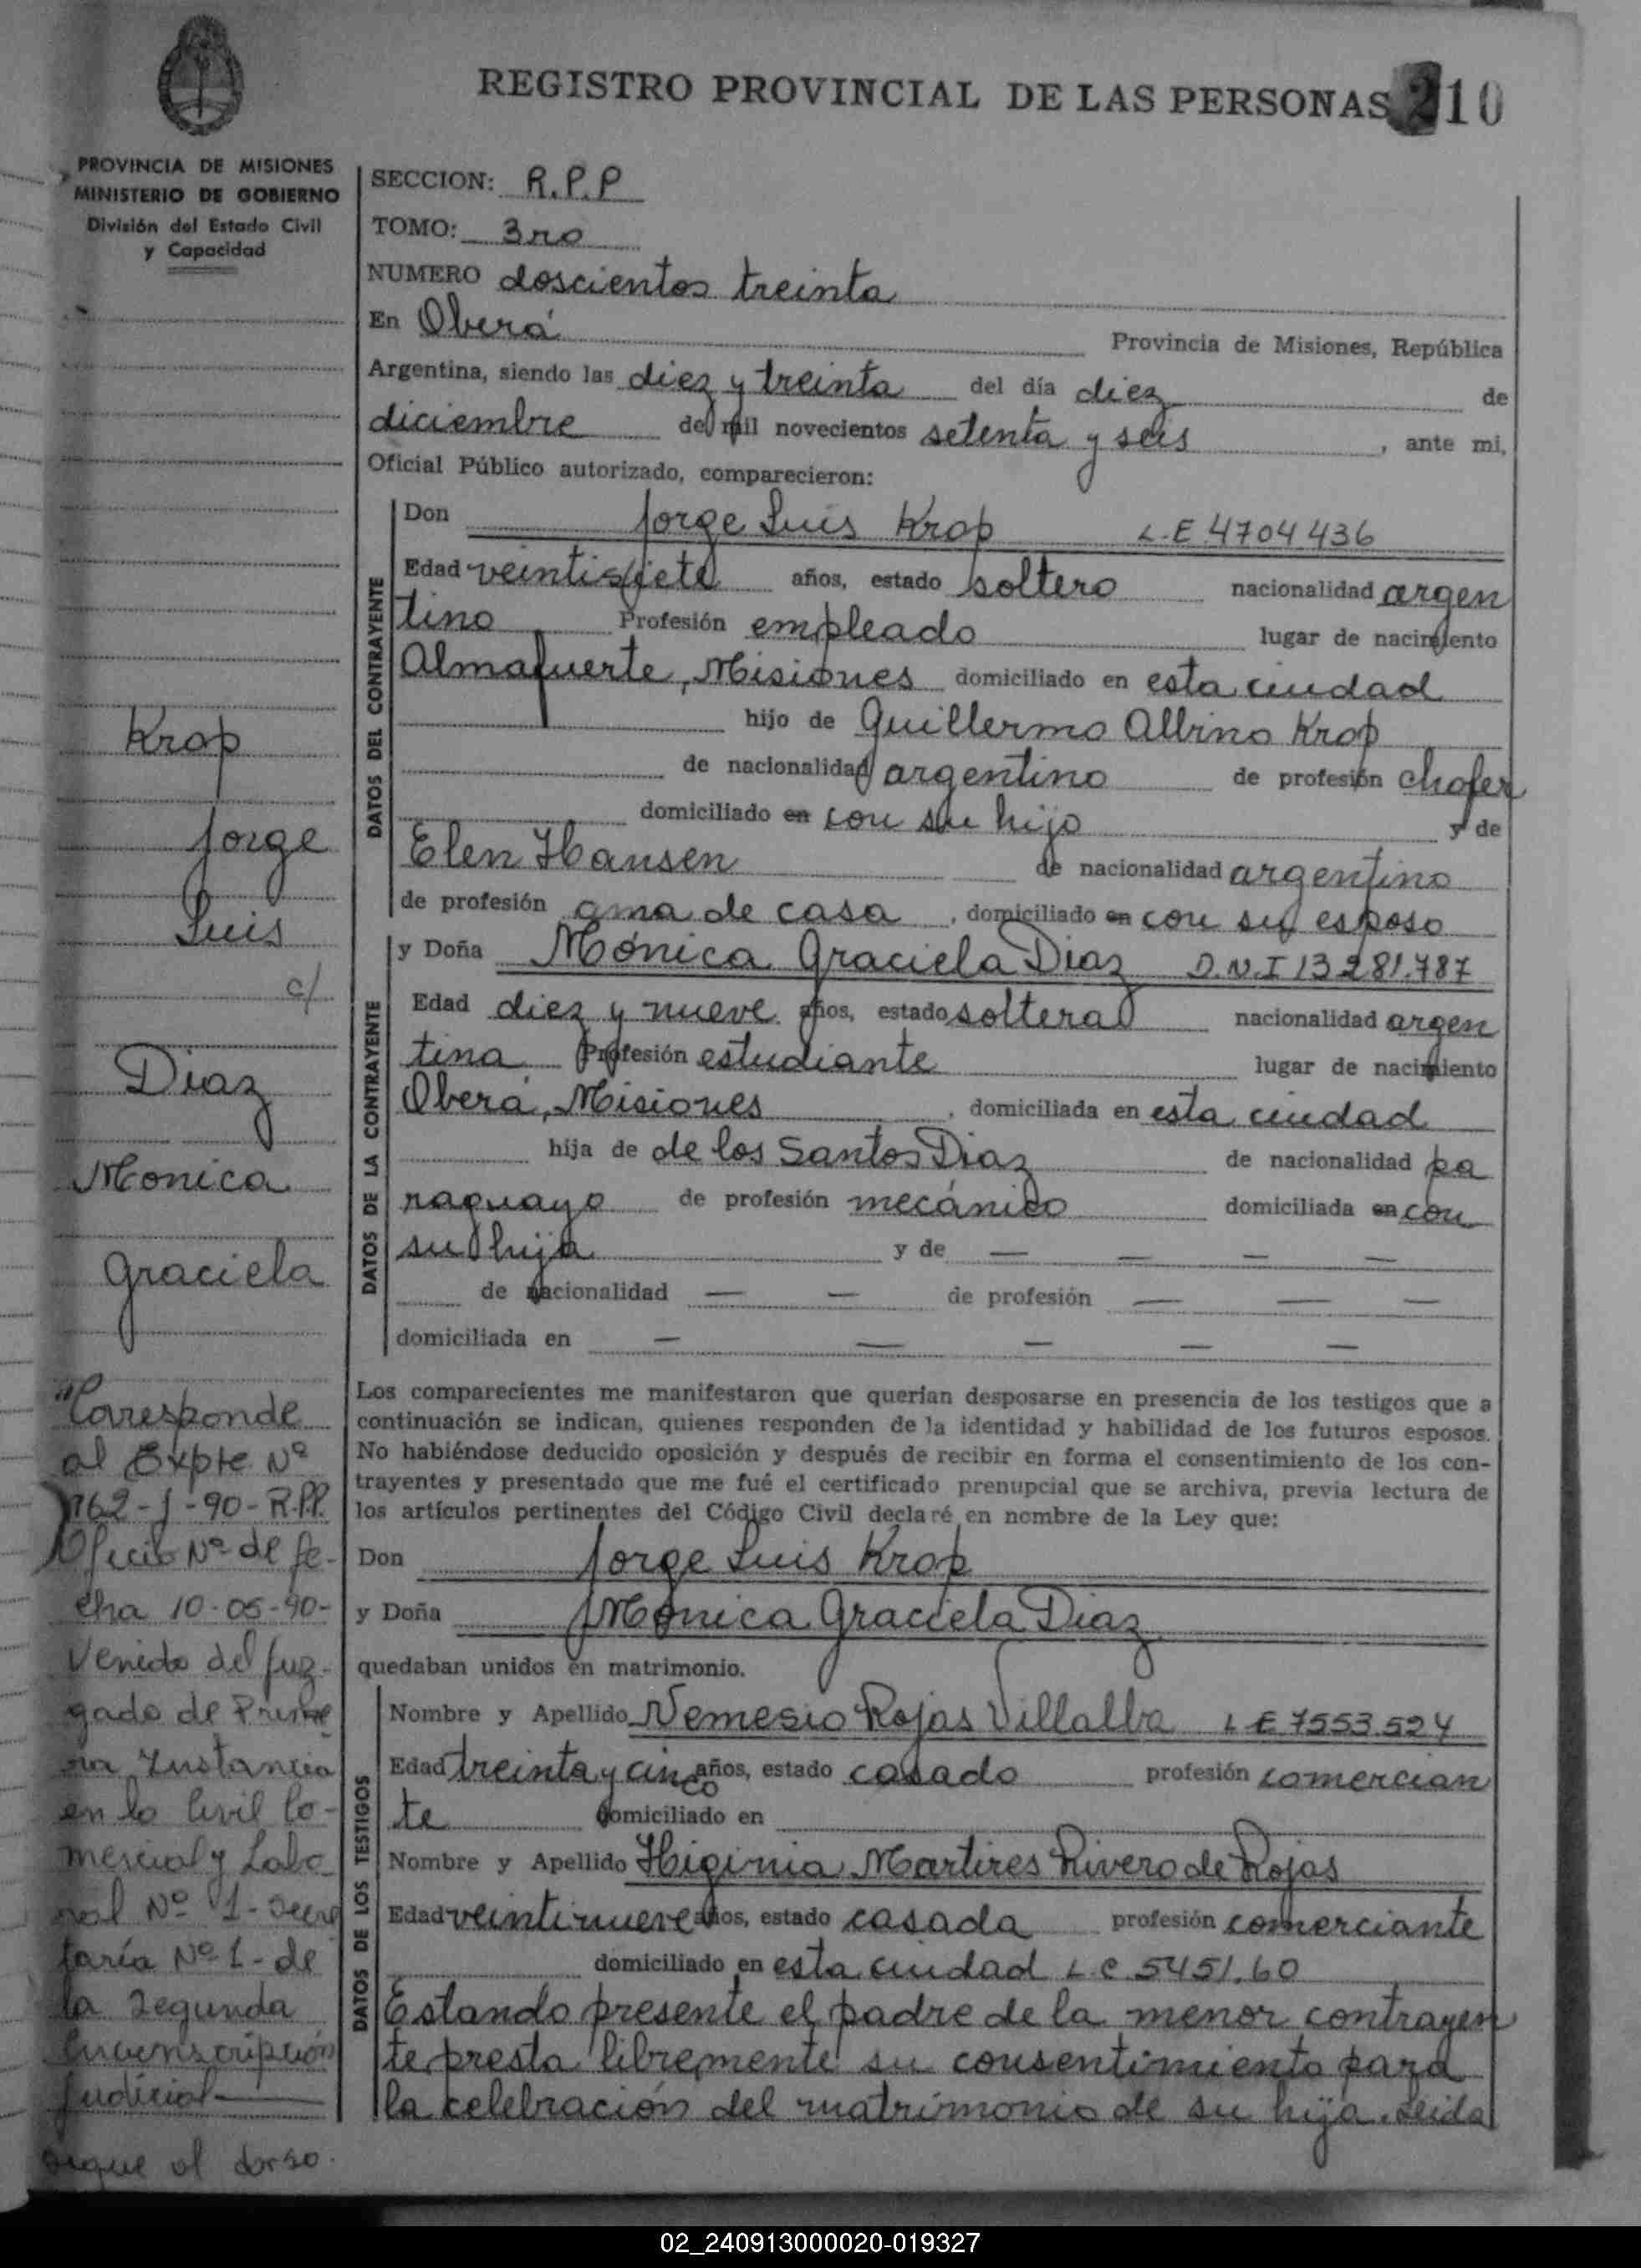 REGISTRO PROVINCIAL DE LAS PERSONAS 210
PROVINCIA DE MISIONES
MINISTERIO DE GOBIERNO
División del Estado Civil
y Capacidad
SECCION: R.P.P
TOMO: 3ro
NUMERO doscientos treinta
En Oberá Provincia de Misiones, República
Argentina, siendo las diez y treinta del día diez de
diciembre de mil novecientos setenta y seis, ante mi,
Oficial Público autorizado, comparecieron:
DATOS DEL CONTRAYENTE
Don Jorge Luis Krop L.E 4704436
Edad veintisiete años, estado soltero nacionalidad argen
tino Profesión empleado lugar de nacimiento
Almafuerte, Misiones domiciliado en esta ciudad
hijo de Guillermo Albino Krop
de nacionalidad argentino de profesión chofer
domiciliado en con su hijo y de
Elen Hansen de nacionalidad argentino
de profesión ama de casa, domiciliado en con su esposo
DATOS DE LA CONTRAYENTE
y Doña Mónica Graciela Diaz D.N.I 13281.787
Edad diez y nueve años, estado soltera nacionalidad argen
tina Profesión estudiante lugar de nacimiento
Oberá, Misiones, domiciliada en esta ciudad
hija de de los Santos Diaz de nacionalidad pa
raguayo de profesión mecánico domiciliada en con
su hija y de — — — —
de nacionalidad — — de profesión — — —
domiciliada en — — — — —
Los comparecientes me manifestaron que querían desposarse en presencia de los testigos que a
continuación se indican, quienes responden de la identidad y habilidad de los futuros esposos.
No habiéndose deducido oposición y después de recibir en forma el consentimiento de los con-
trayentes y presentado que me fué el certificado prenupcial que se archiva, previa lectura de
los artículos pertinentes del Código Civil declaré en nombre de la Ley que:
Don Jorge Luis Krop
y Doña Mónica Graciela Diaz
quedaban unidos en matrimonio.
DATOS DE LOS TESTIGOS
Nombre y Apellido Nemesio Rojas Villalba L E 7553.524
Edad treinta y cinco años, estado casado profesión comercian
te domiciliado en
Nombre y Apellido Higinia Martires Rivero de Rojas
Edad veintinueve años, estado casada profesión comerciante
domiciliado en esta ciudad L.C 5451.60
Estando presente el padre de la menor contrayen
te presta libremente su consentimiento para
la celebración del matrimonio de su hija. Leida
Krop
Jorge
Luis
c/
Diaz
Monica
Graciela
"Corresponde
al Expte Nº
762-J-90-R.P.P.
Oficio Nº de fe-
cha 10-05-90-
Venido del Juz-
gado de Prime
ra Instancia
en lo Civil Co-
mercial y Labo
ral Nº 1- Secre
taría Nº 1- de
la Segunda
Circunscripción
Judicial-
sigue al dorso.
02_240913000020-019327